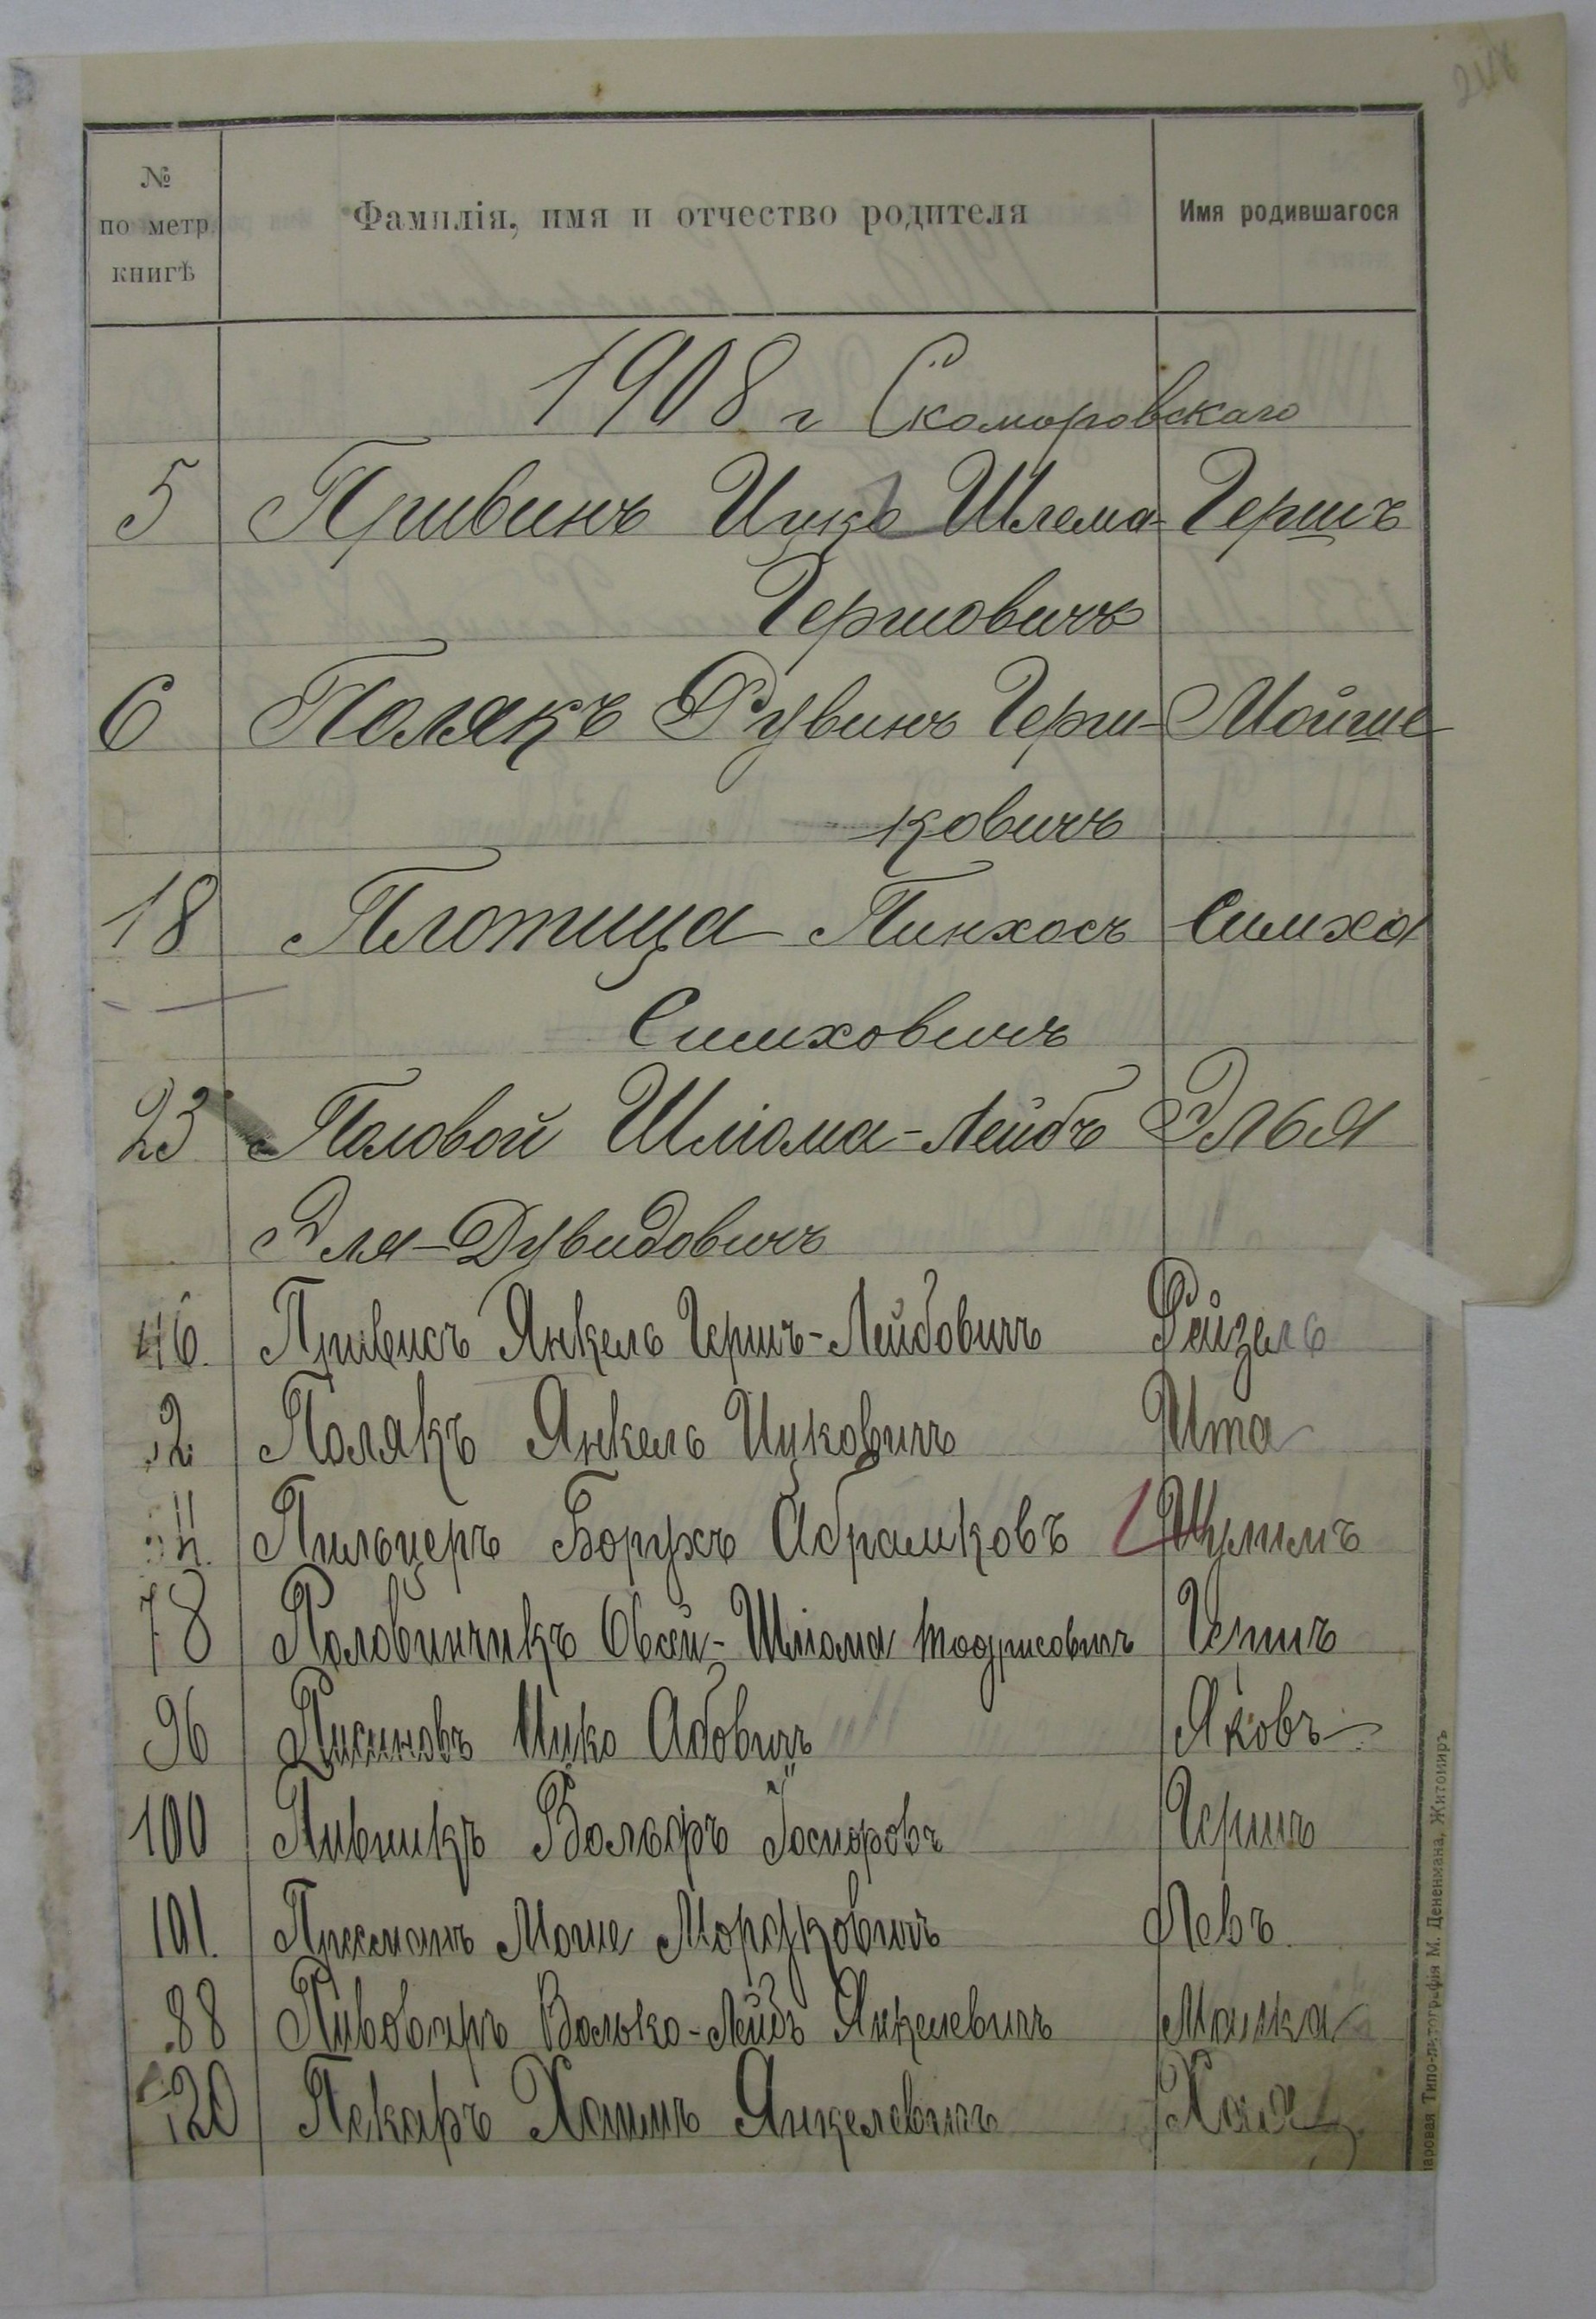 248
№
по метр.
книгѣ
Фамилія, имя и отчество родителя
Имя родившагося
1908 г Скоморовскаго
5 Привинъ Ицко Шлема- Гершъ
Гершовичъ
6 Полякъ Рувинъ Герш- Мойше
ковичъ
18 Плотица Пинхосъ Симха
Симховичъ
23 Половой Шліома-Лейбъ Элья
Эля-Дувидовичъ
46. Привисъ Янкель Гершъ-Лейбовичъ Рейзель
2 Полякъ Янкель Ицковичъ Ита
Пильцеръ Борухъ Абрамковъ Шулимъ
78 Половинчикъ Овсей-Шліома Тодрисовичъ Гершъ
96 Ицко Абовичъ Яковъ
100 Пивникъ Вольфъ Іосиповъ Гершъ
101. Пресманъ Моше Мордковичъ Левъ.
88 Пивоваръ Волько-Лейбъ Янкелевичъ Малка
120 Пекаръ Хаимъ Янкелевичъ Хая
Паровая Типо-литографія М. Дененмана, Житомиръ